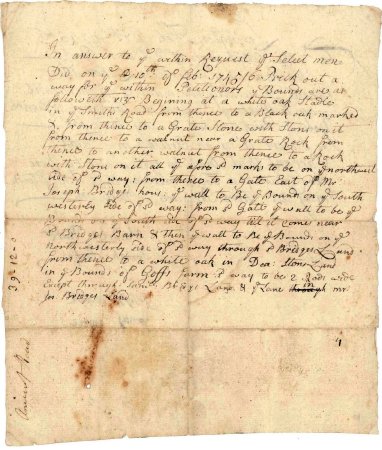 In answer to ye within Request ye Select men
Did on ye 10th of Feb: 1745/6 Prick out a
way for ye within Petitionors ye Bounds are as
followeth viz Begining at a white oak Stadle
in ye Road from thence to a Black oak marked
& from thence to a Grate Stone with Stons on it
from thence to a walnut near a Grate Rock from
thence to another walnut from thence to a Rock
with Stons on it all ye afore sd marks to be on ye northwest
side of sd way from thence to a Gate East of Mr
Joseph Bridges hous: ye wall to Be ye Bound on ye South
westerly side of sd way: from sd Gate ye wall to be ye
Bound on ye South side of sd way till it come near
sd Bridges Barn & then ye wall to Be ye Bounds on ye
northwesterly side of sd way through sd Bridges Land
from thence to a white oak in Dea: Stons Land
in ye Bounds of Goffs farm sd way to be 2 Rods wide
Except through Land & ye Lane through in mr
Bridges Land
39-12-5
Road